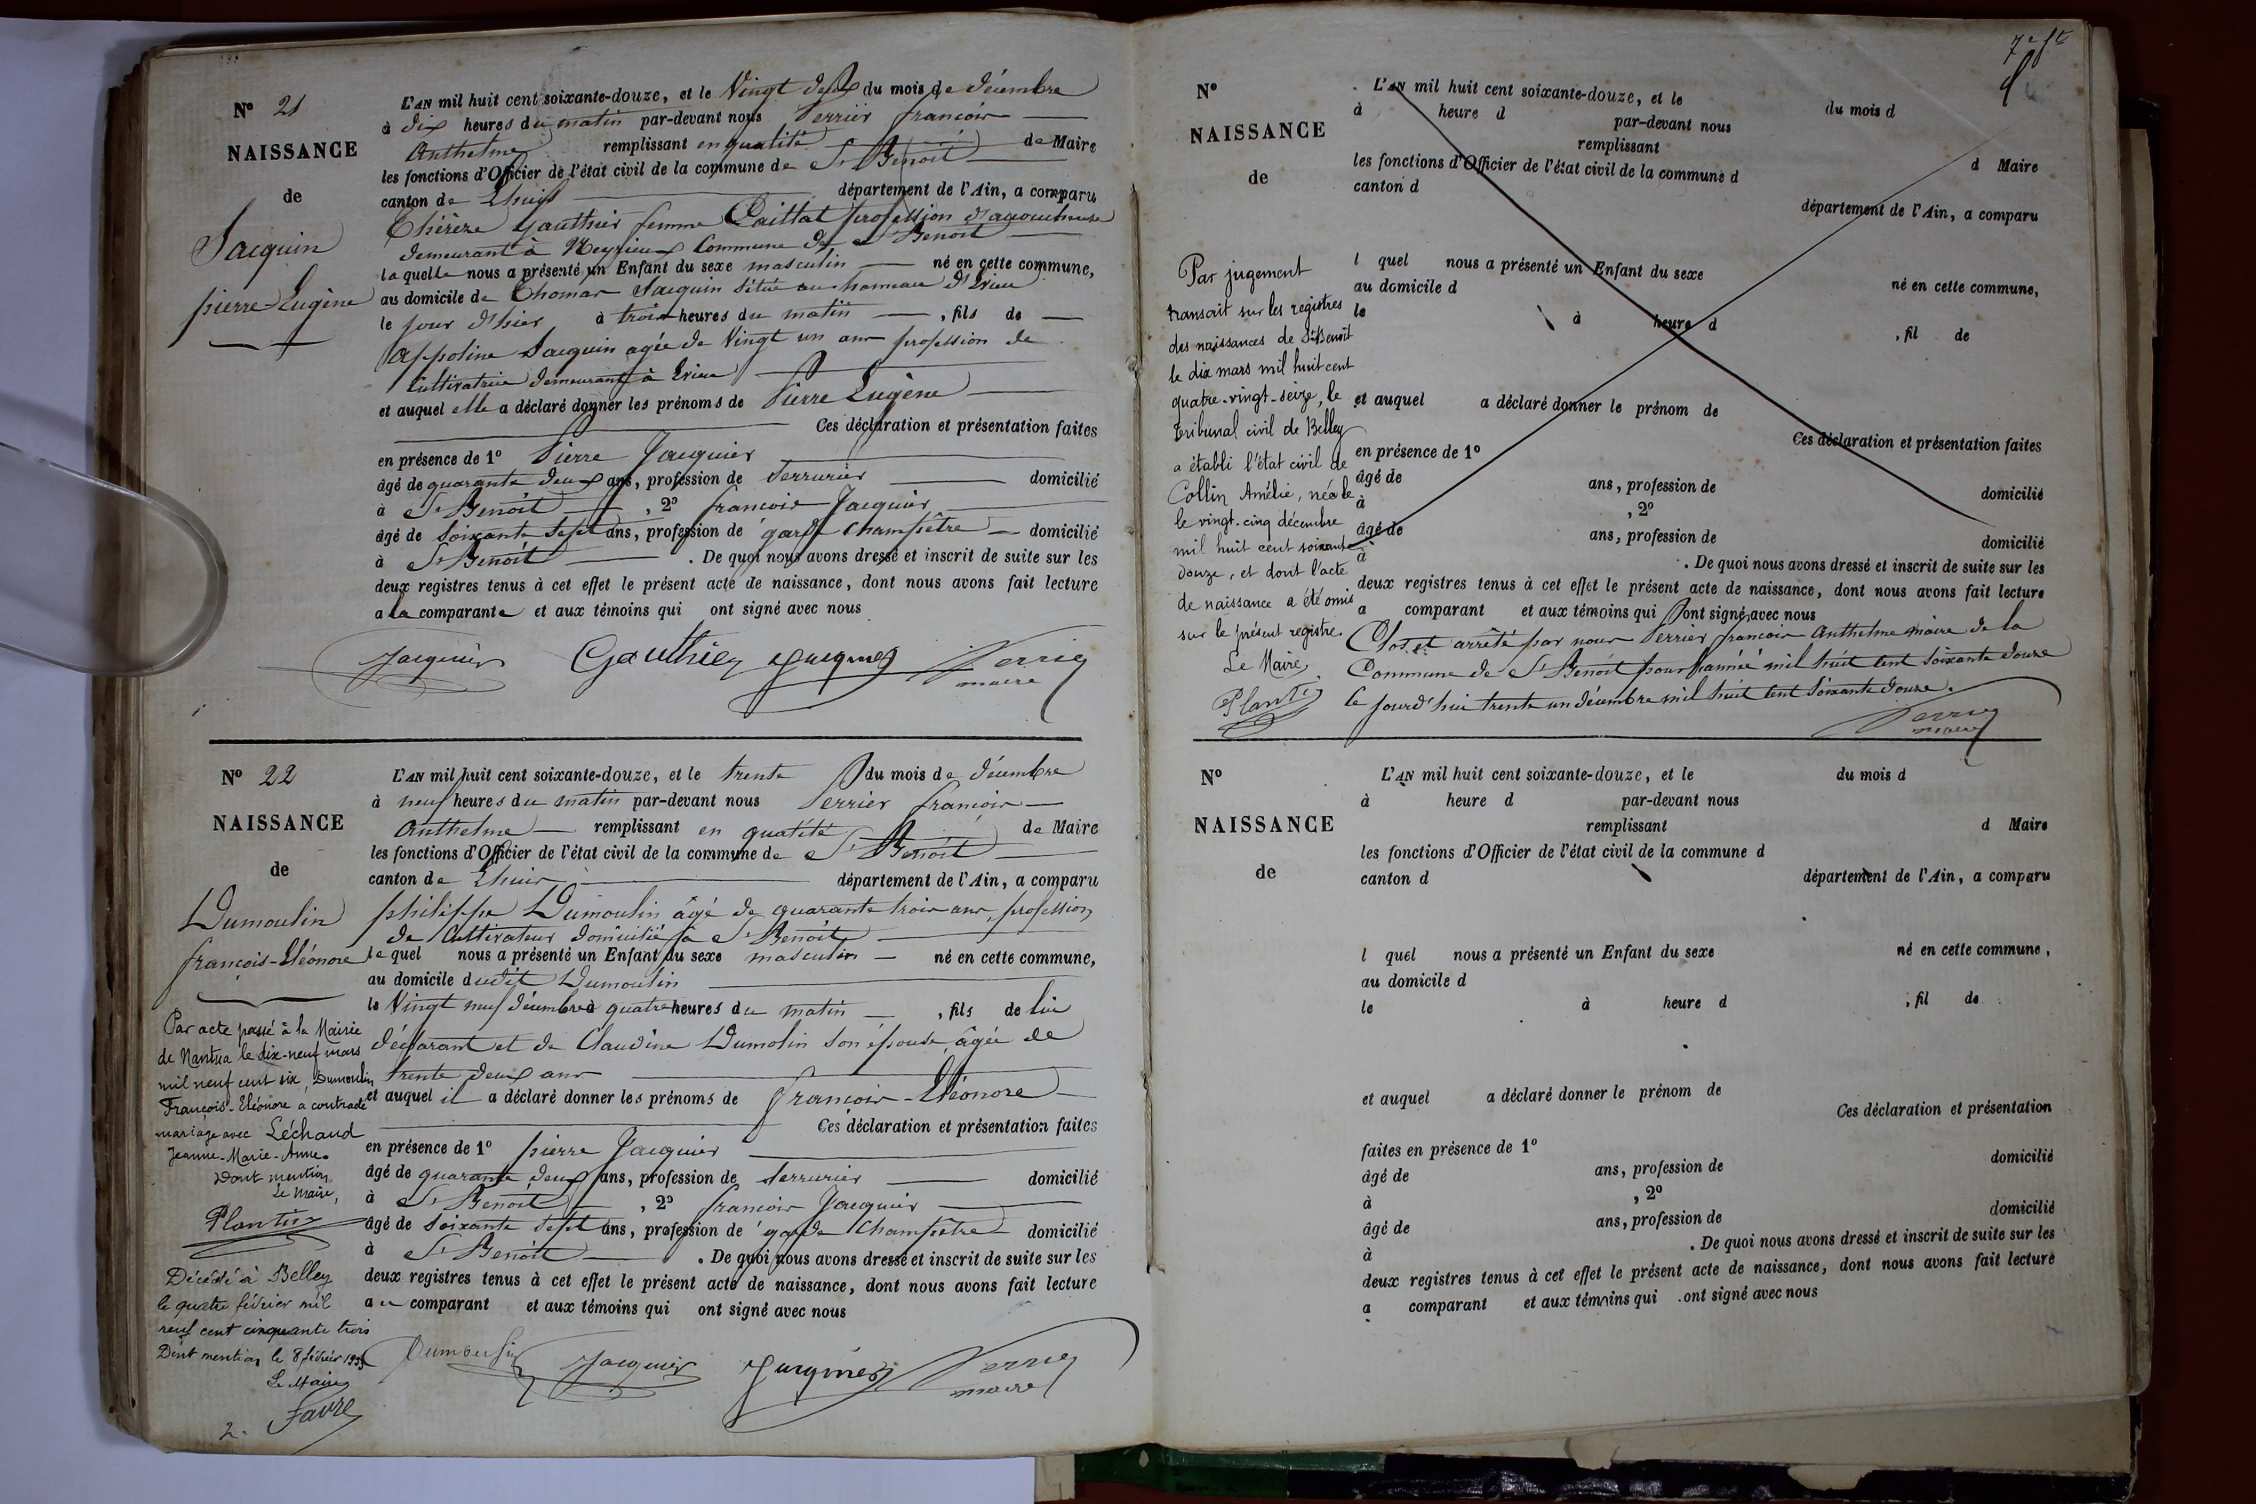 N° 21
NAISSANCE
de
Jacquin
pierre-Eugène
L'AN mil huit cent soixante-douze, et le Vingt deux du mois de décembre
à dix heures du matin par-devant nous Perrier françois
Anthelme remplissant en qualité de Maire
les fonctions d'Officier de l'état civil de la commune de St Benoit
canton de Lhuis département de l'Ain, a comparu
Thérèze Gauthier femme Caillat profession d'acoucheuse
demeurant à Meyrieux Commune de St Benoit
la quelle nous a présenté un Enfant du sexe masculin né en cette commune,
au domicile de Thomas Jacquin située au hameau d'Evieu
le jour d'hier à trois heures du matin , fils de
Appoline Jacquin agée de Vingt un ans profession de
Cultivatrice demeurant à Evieu
et auquel elle a déclaré donner les prénoms de Pierre Eugène
Ces déclaration et présentation faites
en présence de 1° Pierre Jacquier
âgé de quarante deux ans, profession de Serrurier domicilié
à St Benoit , 2° françois Jacquier
âgé de Soixante Sept ans, profession de garde Champêtre domicilié
à St Benoit . De quoi nous avons dressé et inscrit de suite sur les
deux registres tenus à cet effet le présent acte de naissance, dont nous avons fait lecture
a la comparante et aux témoins qui ont signé avec nous
Jacquier Gauthier Jacquier Perrier
maire
N° 22
NAISSANCE
de
Dumoulin
françois-Eléonore
L'AN mil huit cent soixante-douze, et le trente du mois de décembre
à neuf heures du matin par-devant nous Perrier françois
Anthelme remplissant en qualité de Maire
les fonctions d'Officier de l'état civil de la commune de St Benoit
canton de Lhuis département de l'Ain, a comparu
philippe Dumoulin âgé de quarante trois ans, profession
de Cultivateur domicilié à St Benoit
le quel nous a présenté un Enfant du sexe masculin né en cette commune,
au domicile dudit Dumoulin
le Vingt neuf décembre à quatre heures du matin , fils de lui
déclarant et de Claudine Dumolin son épouse, âgée de
trente deux ans
et auquel il a déclaré donner les prénoms de françois-Eléonore
Ces déclaration et présentation faites
en présence de 1° pierre Jacquier
âgé de quarante deux ans, profession de Serrurier domicilié
à St Benoit , 2° françois Jacquier
âgé de Soixante Sept ans, profession de garde Champêtre domicilié
à St Benoit . De quoi nous avons dressé et inscrit de suite sur les
deux registres tenus à cet effet le présent acte de naissance, dont nous avons fait lecture
au comparant et aux témoins qui ont signé avec nous
Dumoulin Jacquier Jacquier Perrier
maire
Par acte passé à la Mairie
de Nantua le dix-neuf mars
mil neuf cent six, Dumoulin
François-Eléonore a contracté
mariage avec Léchaud
Jeanne-Marie-Anne.
Dont mention
Le Maire,
Plantin
Décédé à Belley
le quatre février mil
neuf cent cinquante trois
Dont mention le 8 février 1953
Le Maire
Favre
2.
7e ft
N°
NAISSANCE
de
L'AN mil huit cent soixante-douze, et le du mois d
à heure d par-devant nous
remplissant d Maire
les fonctions d'Officier de l'état civil de la commune d
canton d département de l'Ain, a comparu
l quel nous a présenté un Enfant du sexe né en cette commune,
au domicile d
le à heure d , fil de
et auquel a déclaré donner le prénom de
Ces déclaration et présentation faites
en présence de 1°
âgé de ans, profession de domicilié
à , 2°
âgé de ans, profession de domicilié
à . De quoi nous avons dressé et inscrit de suite sur les
deux registres tenus à cet effet le présent acte de naissance, dont nous avons fait lecture
a comparant et aux témoins qui ont signé avec nous
Clos et arrêté par nous Perrier françois Anthelme maire de la
Commune de St Benoit pour l'année mil huit cent soixante douze
le jourd'hui trente un décembre mil huit cent soixante douze.
Perrier
maire
Par jugement
transcrit sur les registres
des naissances de St Benoît
le dix mars mil huit cent
quatre-vingt-seize, le
tribunal civil de Belley
a établi l'état civil de
Collin Amélie, née le
le vingt-cinq décembre
mil huit cent soixante
douze, et dont l'acte
de naissance a été omis
sur le présent registre.
Le Maire,
Plantin
N°
NAISSANCE
de
L'AN mil huit cent soixante-douze, et le du mois d
à heure d par-devant nous
remplissant d Maire
les fonctions d'Officier de l'état civil de la commune d
canton d département de l'Ain, a comparu
l quel nous a présenté un Enfant du sexe né en cette commune,
au domicile d
le à heure d , fil de
et auquel a déclaré donner le prénom de
Ces déclaration et présentation
faites en présence de 1°
âgé de ans, profession de domicilié
à , 2°
âgé de ans, profession de domicilié
à . De quoi nous avons dressé et inscrit de suite sur les
deux registres tenus à cet effet le présent acte de naissance, dont nous avons fait lecture
a comparant et aux témoins qui ont signé avec nous